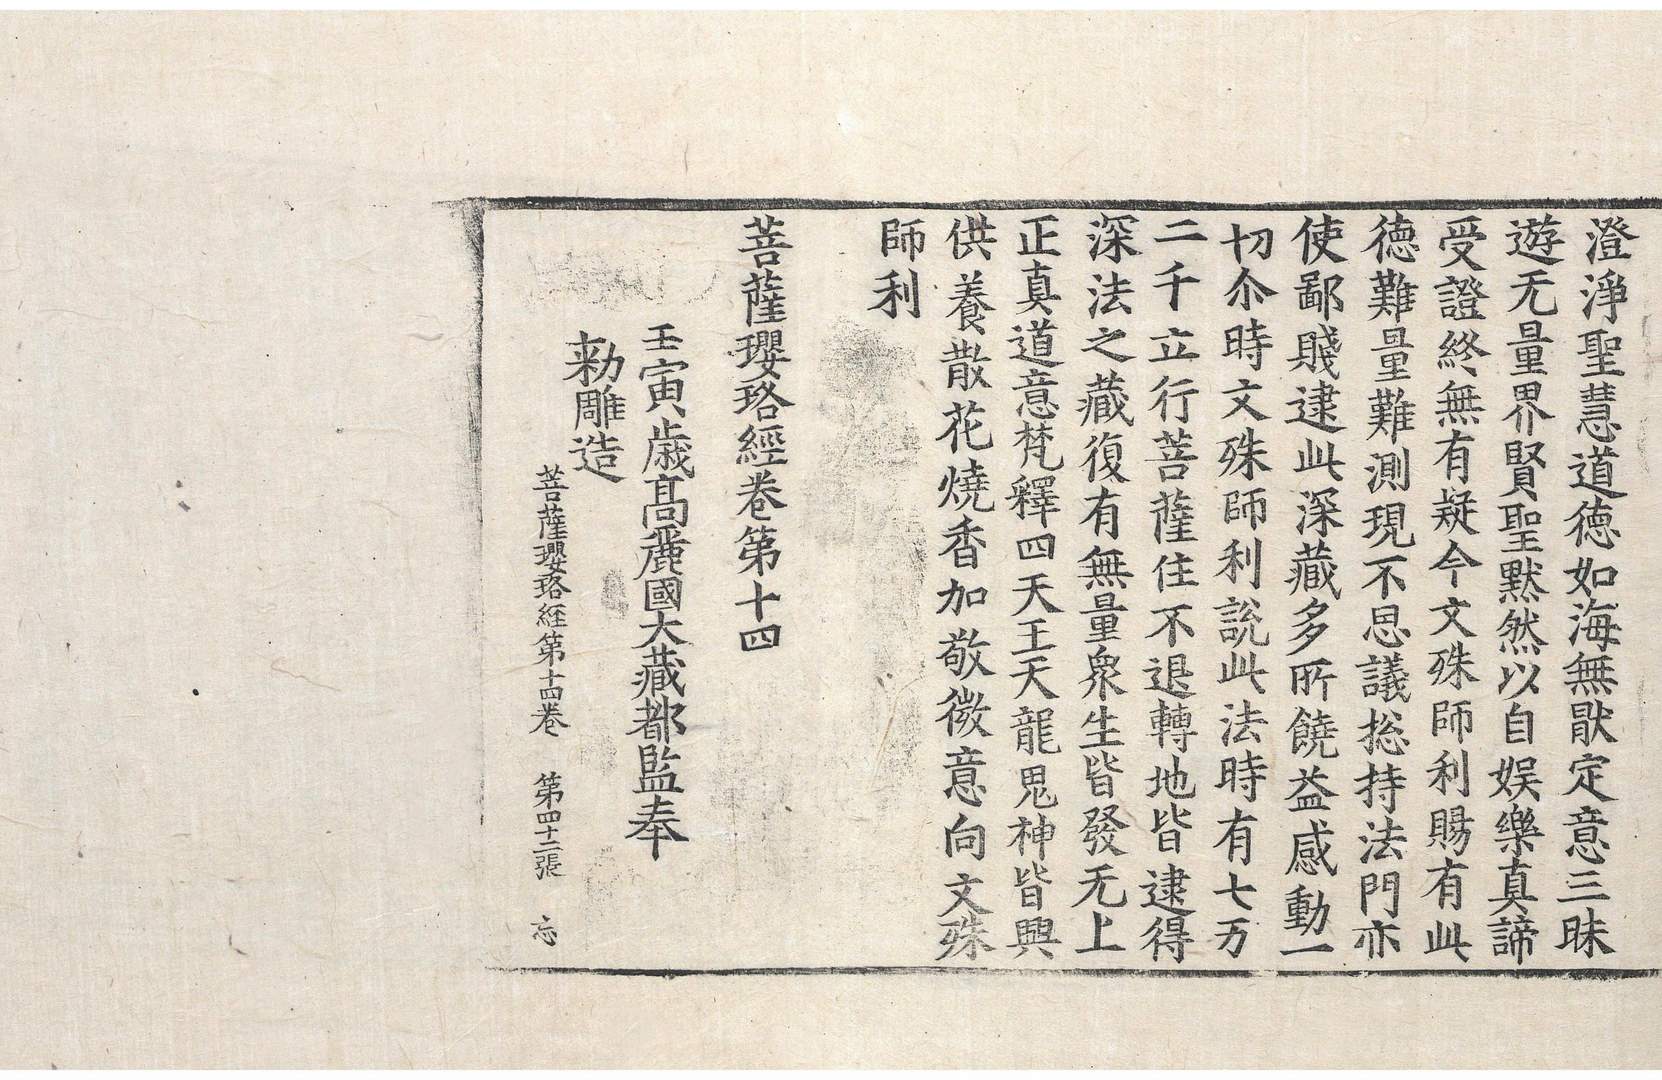 澄淨聖慧道德如海無猒定意三昧
遊无量界賢聖默然以自娛樂真諦
受證終無有疑今文殊師利賜有此
德難量難測現不思議惣持法門亦
使鄙賤逮此深藏多所饒益感動一
切尒時文殊師利說此法時有七万
二千立行菩薩住不退轉地皆逮得
深法之藏復有無量衆生皆發无上
正真道意梵釋四天王天龍鬼神皆興
供養散花燒香加敬微意向文殊
師利
菩薩瓔珞經卷第十四
壬寅歲高麗國大藏都監奉
勑雕造
菩薩瓔珞経第十四卷 第四十二張 忘